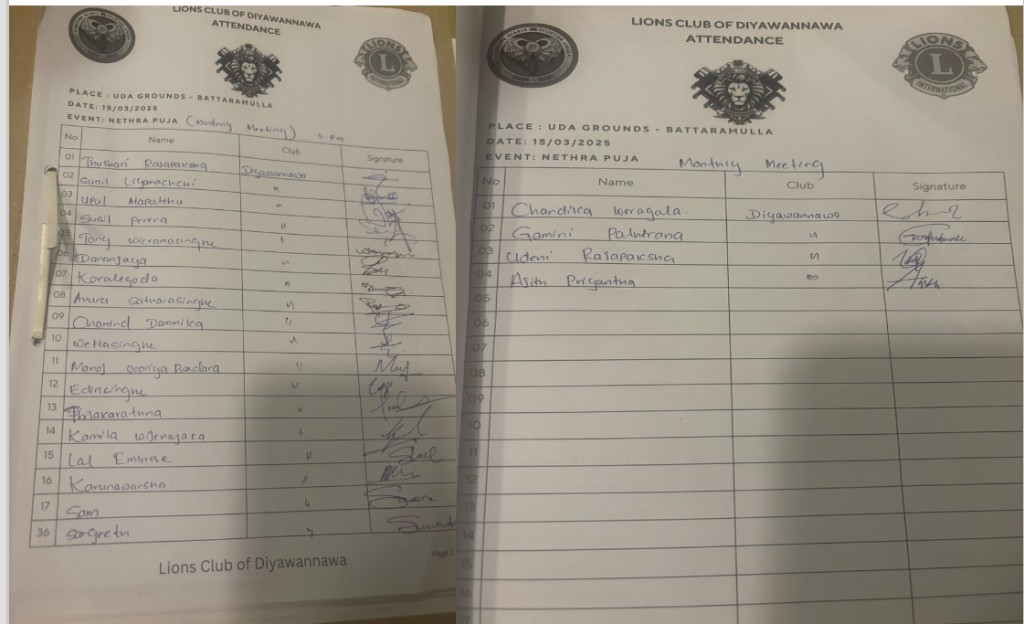 LIONS CLUB OF DIYAWANNAWA
ATTENDANCE
LIONS
INTERNATIONAL
PLACE : UDA GROUNDS - BATTARAMULLA
DATE: 15/03/2025
EVENT: NETHRA PUJA (Monthly Meeting) 5 pm
No Name Club Signature
01 Thushari Rajapaksha Diyawannawa
02 Sunil Liyanachchi "
03 Upul Mapalthu "
04 Susil Perera "
05 Tony wicramasinghe "
06 Dananjaya "
07 Koralegoda "
08 Anura Satharasinghe "
09 Chamind Dammika "
10 Wettasinghe "
11 Manoj Sooriya Bandara "
12 Edirisinghe "
13 Thilakarathna "
14 Kamila Wijenayaka "
15 Lal Embrese "
16 Karunawarsha "
17 Sam "
36 Sangeeth "
Lions Club of Diyawannawa
Page
LIONS CLUB OF DIYAWANNAWA
ATTENDANCE
LIONS
L
INTERNATIONAL
PLACE : UDA GROUNDS - BATTARAMULLA
DATE: 15/03/2025
EVENT: NETHRA PUJA Monthly Meeting
No Name Club Signature
01 Chandika Weragala Diyawannawa
02 Gamini Palutrana "
03 Udeni Rajapaksha "
04 Asith Priyantha "
05
06
07
08
09
10
11
12
13
14
15
16
17